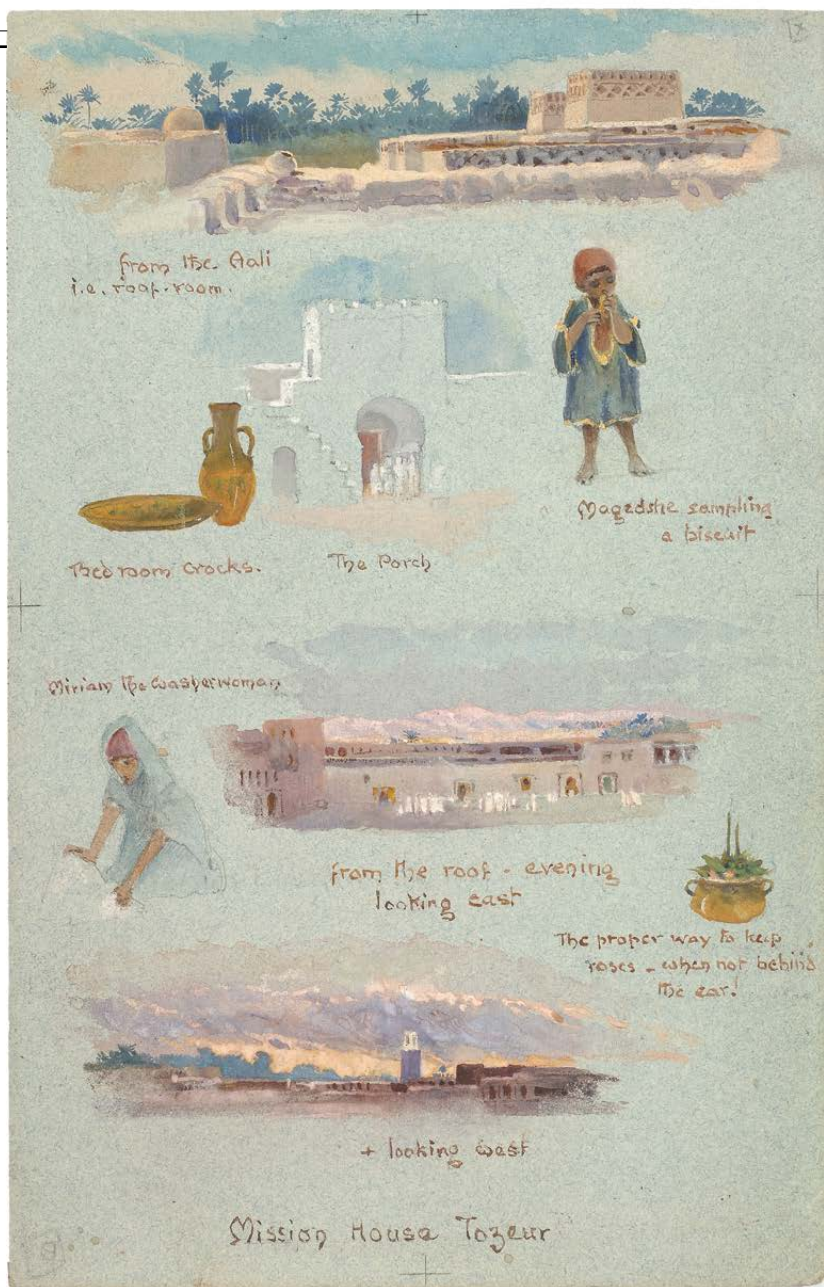 from the Aali
i.e. roof-room.
Magedshe sampling
a biscuit
Bedroom Crocks.
The Porch
Miriam the washerwoman
from the roof - evening
looking east
The proper way to keep
roses - when not behind
the ear!
+ looking west
Mission House Tozeur